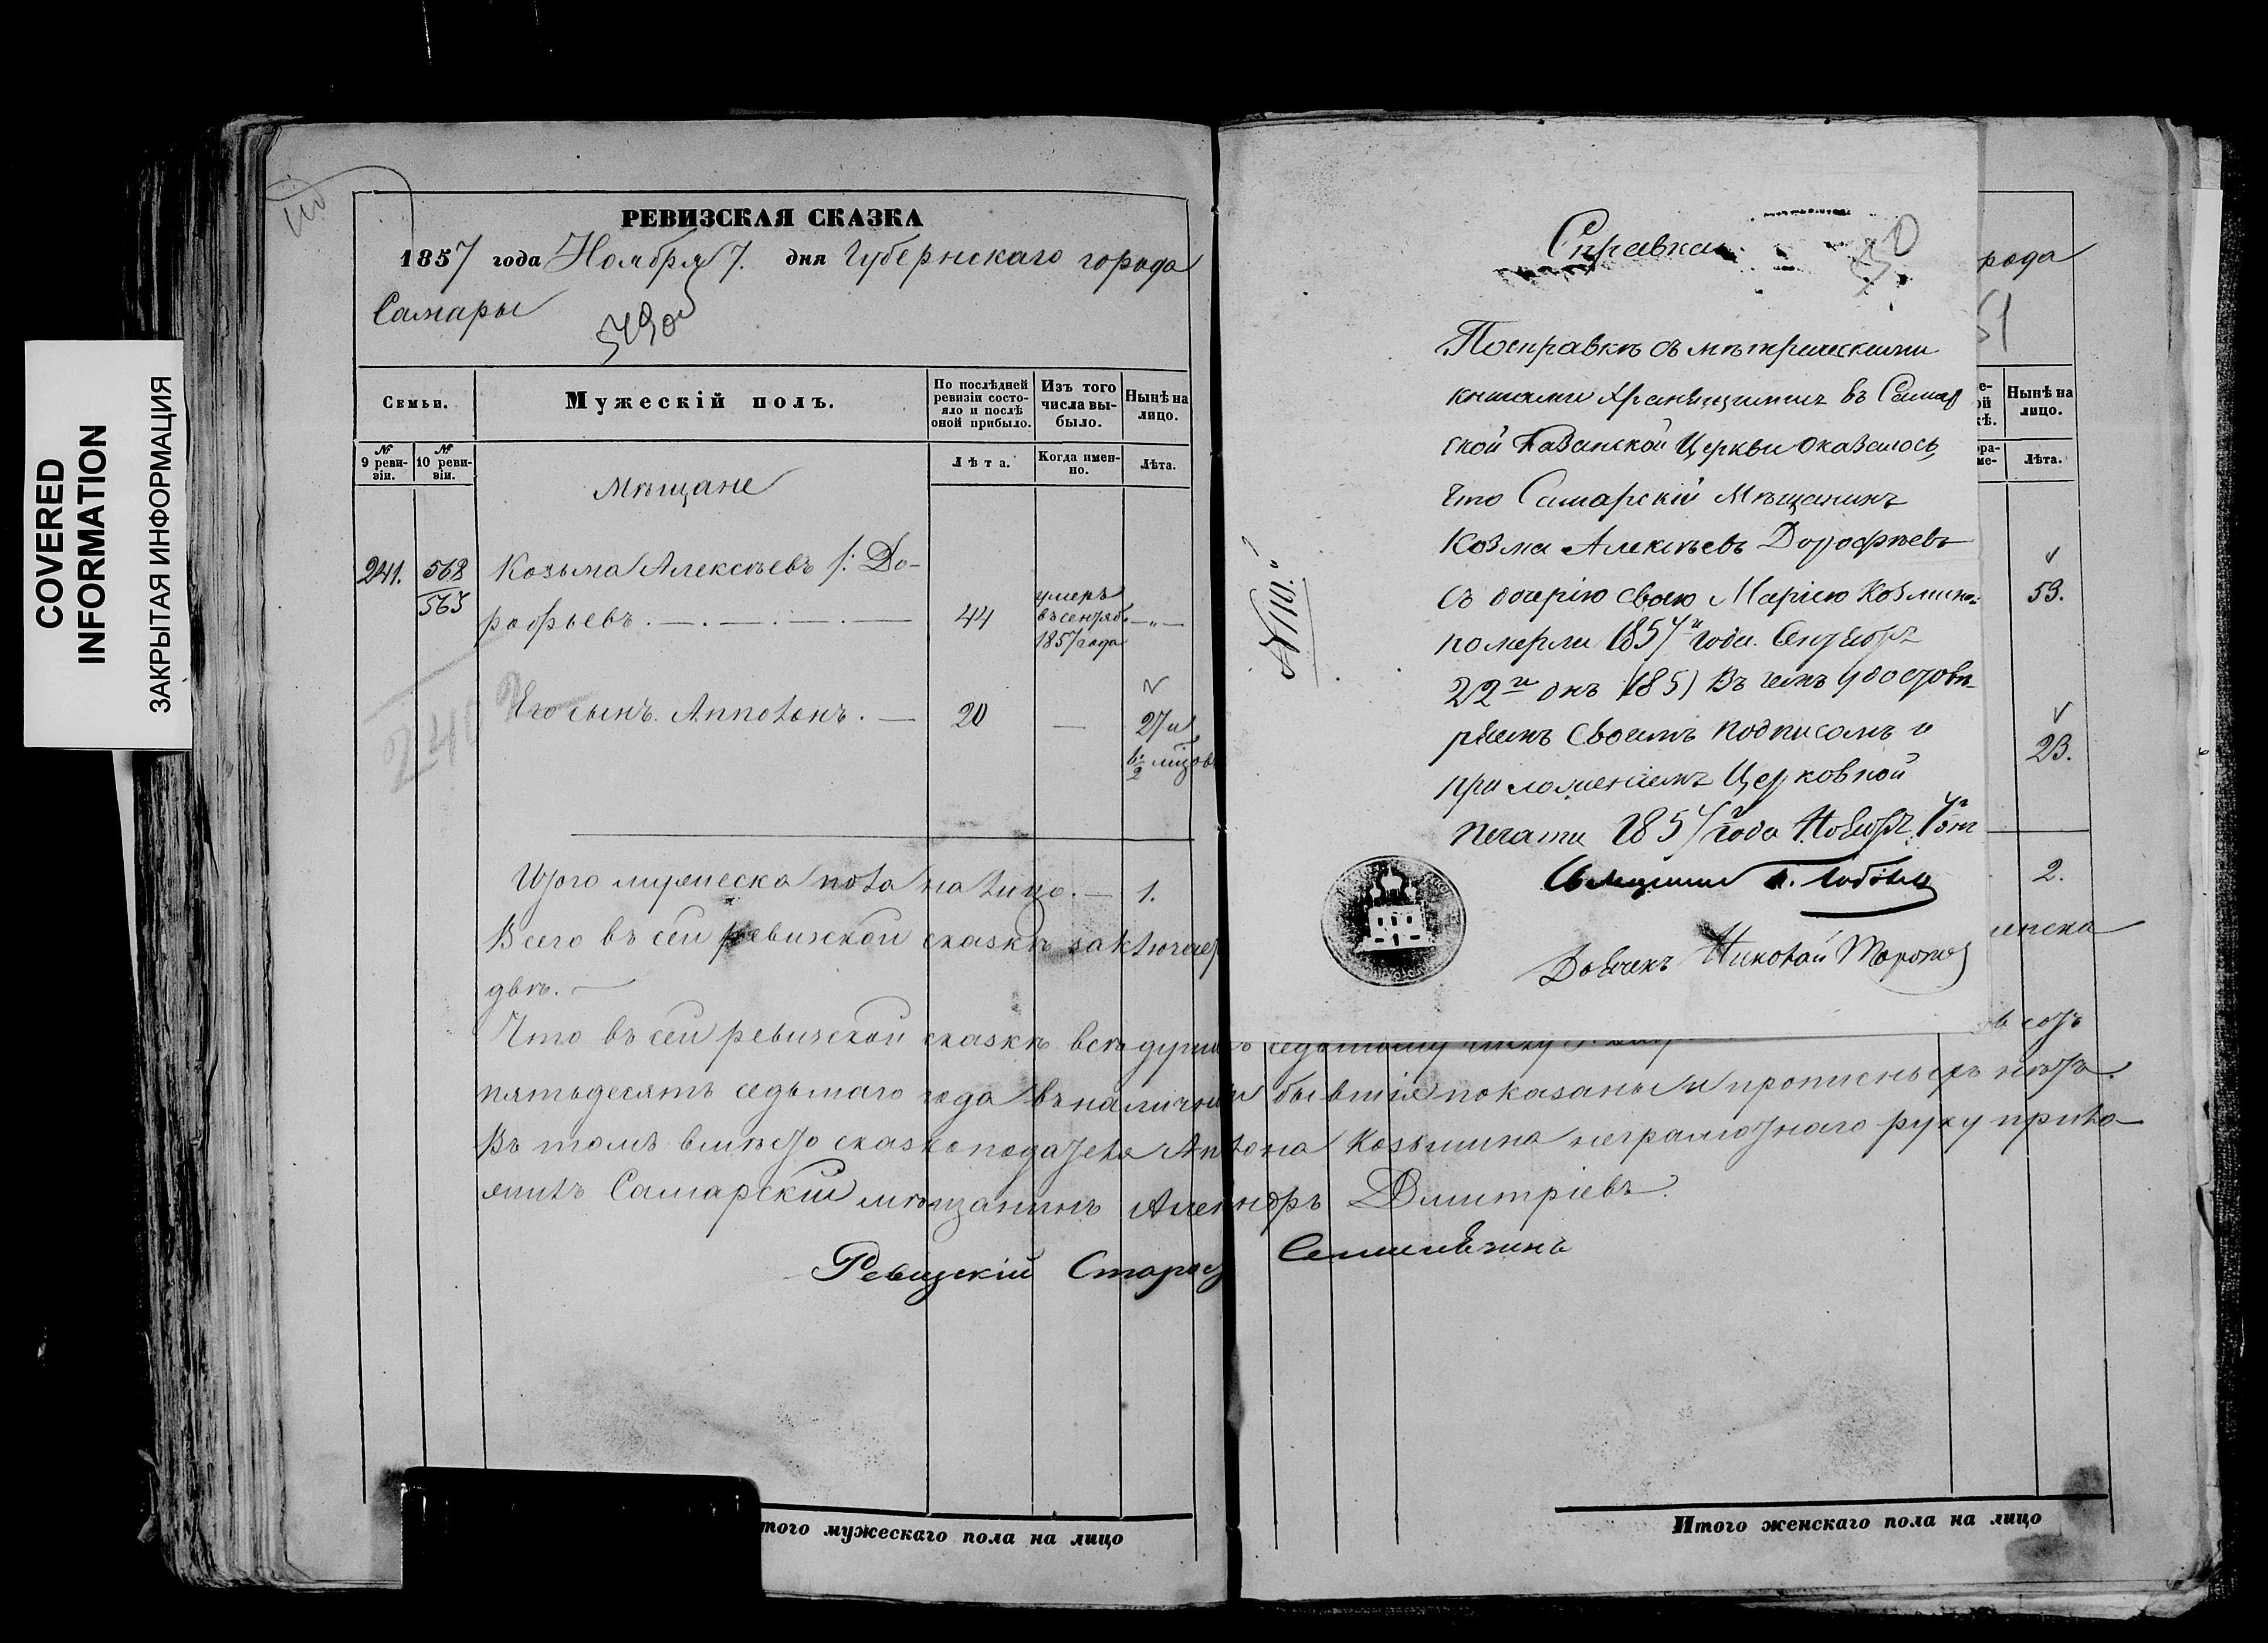 COVERED
INFORMATION
ЗАКРЫТАЯ ИНФОРМАЦИЯ
РЕВИЗСКАЯ СКАЗКА
1857 года Ноября 7. дня Губернскаго города
Самары
Семьи.
Мужескій полъ.
По послѣдней ревизіи состояло и послѣ оной прибыло.
Изъ того числа выбыло.
Нынѣ на лицо.
№ 9 ревизіи.
№ 10 ревизіи.
Лѣта.
Когда именно.
Лѣта.
Мѣщане
241. 568 Козьма Алексѣевъ /: До-
563 рофѣевъ. 44 умеръ въ сентяб. 1857 года — „ —
240
Его сынъ. Апполонъ. — 20 — 27 и
Итого мужеска пола на лицо. — 1.
Всего въ сей ревизской сказкѣ заключает
двѣ. —
Что въ сей ревизской сказкѣ всѣ души
пятьдесятъ седьмаго года въ наличнои бывшія показаны и прописныхъ нѣтъ.
Въ томъ вмѣсто сказкоподателя Антона Козьмина неграмотнаго руку прило-
жилъ Самарскій мѣщанинъ Алекндръ Дмитріевъ.
Ревизскій Старос
итого мужескаго пола на лицо
Справка
№ 110.
По справкѣ съ мѣтрическими
книгами хранящимися въ Самар
ской Казанской Церкви оказалось,
что Самарскій Мѣщанинъ
Козма Алексѣевъ Дорофѣевъ
съ дочерію своею Маріею Козмино:
померли 1857 года. Сентября
22 днъ (185) Въ чемъ удостовѣ-
ряемъ своимъ подписомъ и
приложеніемъ Церковной
печати 1857 года Ноября 7 дня
Священникъ
Николай
рода
51
Нынѣ на лицо.
Лѣта.
53.
23.
2.
женска
Итого женскаго пола на лицо